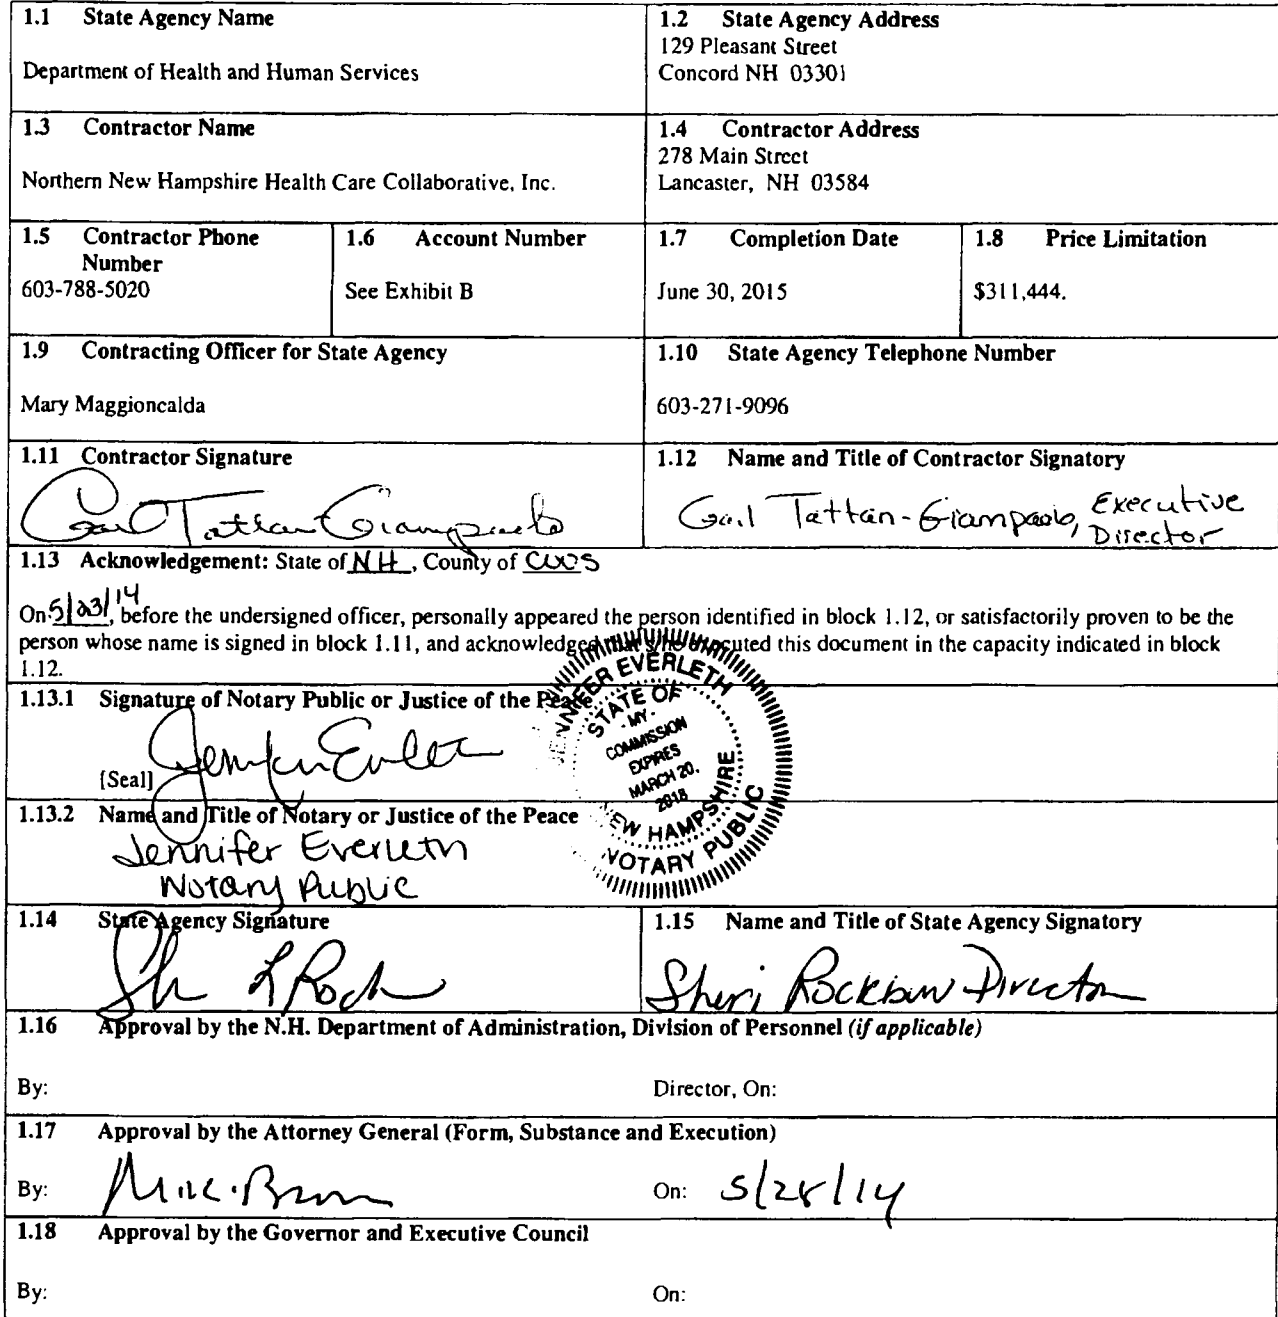 1.1 State Agency Name
Department of Health and Human Services
1.2 State Agency Address
129 Pleasant Street
Concord NH 03301
1.3 Contractor Name
Northern New Hampshire Health Care Collaborative, Inc.
1.4 Contractor Address
278 Main Street
Lancaster, NH 03584
1.5 Contractor Phone
Number
603-788-5020
1.6 Account Number
See Exhibit B
1.7 Completion Date
June 30, 2015
1.8 Price Limitation
$311,444.
1.9 Contracting Officer for State Agency
Mary Maggioncalda
1.10 State Agency Telephone Number
603-271-9096
1.11 Contractor Signature
Gail Tattan Giampaolo
1.12 Name and Title of Contractor Signatory
Gail Tattan-Giampaolo, Executive
Director
1.13 Acknowledgement: State of NH, County of COOS
On 5/23/14, before the undersigned officer, personally appeared the person identified in block 1.12, or satisfactorily proven to be the
person whose name is signed in block 1.11, and acknowledged that s/he executed this document in the capacity indicated in block
1.12.
1.13.1 Signature of Notary Public or Justice of the Peace
Jennifer Everleth
[Seal]
JENNIFER EVERLETH
STATE OF
MY
COMMISSION
EXPIRES
MARCH 20,
2018
NEW HAMPSHIRE
NOTARY PUBLIC
1.13.2 Name and Title of Notary or Justice of the Peace
Jennifer Everleth
Notary Public
1.14 State Agency Signature
1.15 Name and Title of State Agency Signatory
Sheri Rockburn Director
1.16 Approval by the N.H. Department of Administration, Division of Personnel (if applicable)
By:
Director, On:
1.17 Approval by the Attorney General (Form, Substance and Execution)
By:
On: 5/28/14
1.18 Approval by the Governor and Executive Council
By:
On: